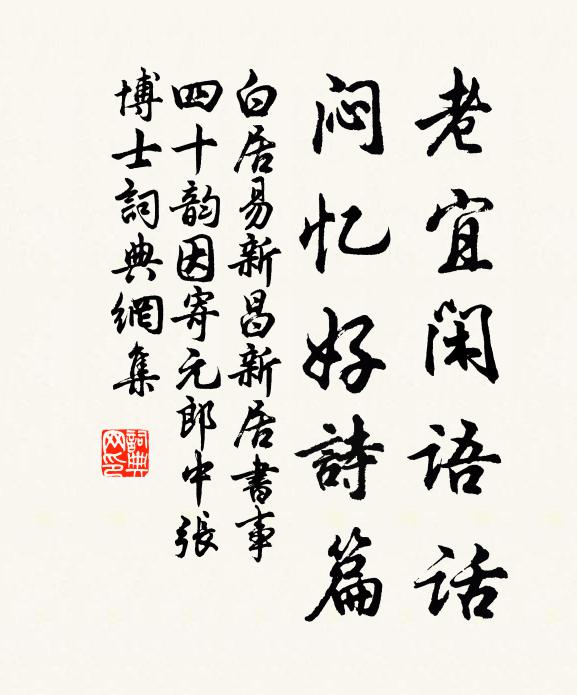 老宜闲语话
闷忆好詩篇
白居易新昌新居書事
四十韵因寄元郎中張
博士詞典網集
詞典
网印